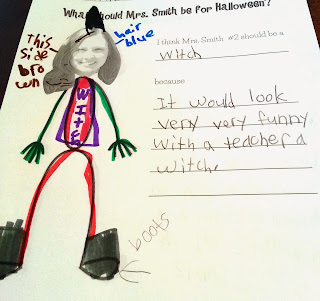 What Should Mrs. Smith be for Halloween?
This
side
bro
wn
hair
blue
I think Mrs. Smith #2 should be a
witch
because
It would look
very very funny
With a teacher a
witch.
WITCH
boots